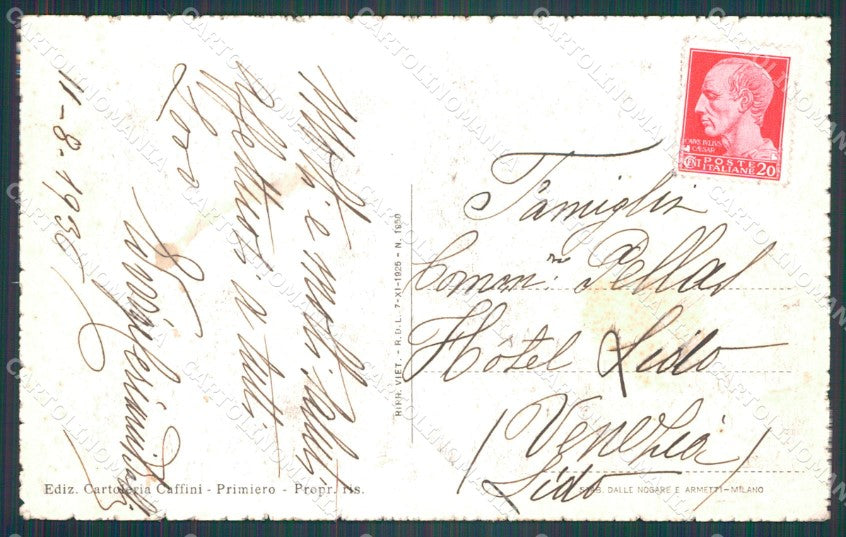 Molti e molti saluti
affettuosi a tutti
Loro
11-8.1930
RIPR. VIET. - R. D. L. 7-XI-1925 - N. 1950
CAIVS IVLIVS
CAESAR
POSTE
ITALIANE 20
Famiglia
Comm:
Hôtel Lido
(Venezia)
Lido
Ediz. Cartoleria Caffini - Primiero - Propr. ris.
DALLE NOGARE E ARMETTI-MILANO
CARTOLINOMANIA